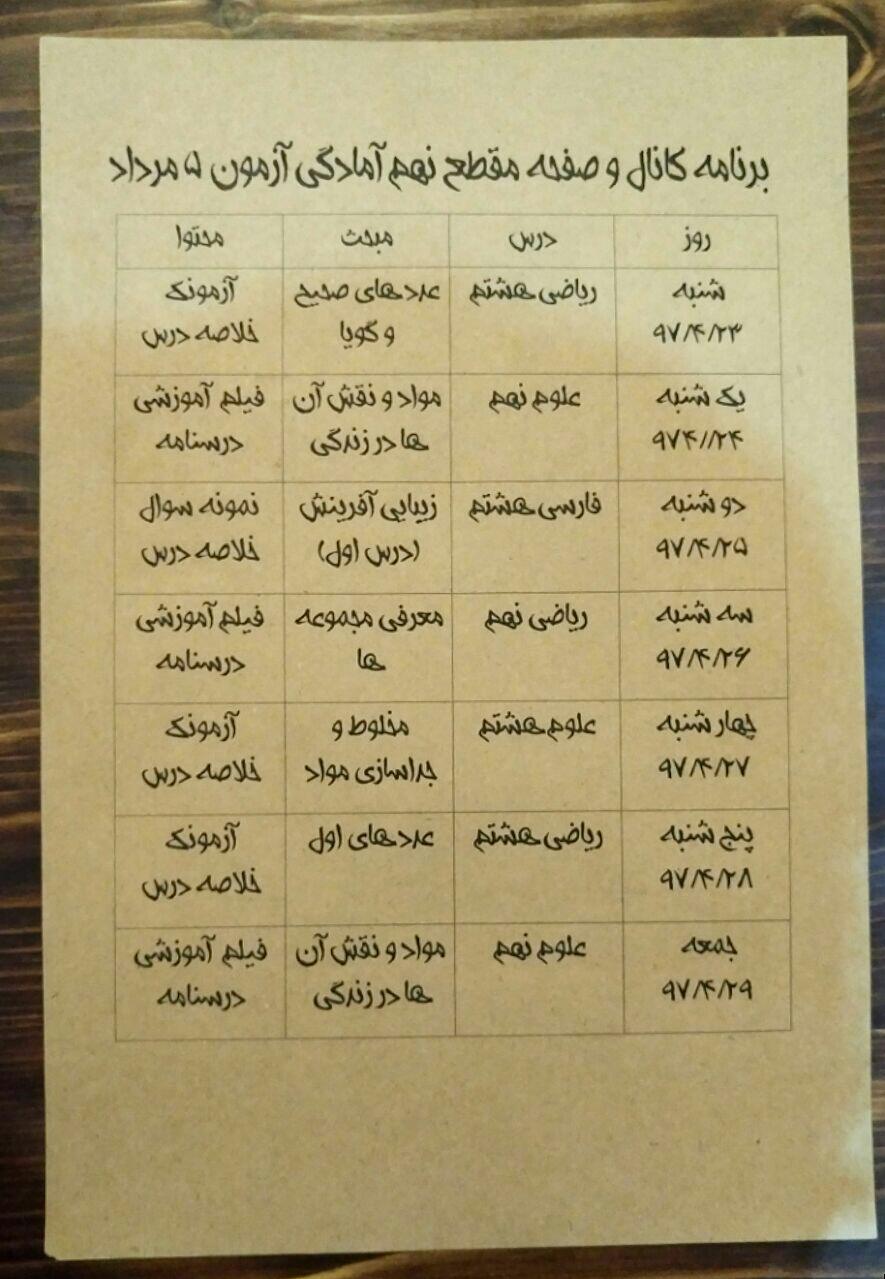 برنامه کانال و صفحه مقطع نهم آمادگی آزمون ۵ مرداد
روز درس مبحث محتوا
شنبه ریاضی هشتم عددهای صحیح آزمونک
۹۷/۴/۲۳ و گویا خلاصه درس
یک شنبه علوم نهم مواد و نقش آن فیلم آموزشی
۹۷۴//۲۴ ها در زندگی درسنامه
دو شنبه فارسی هشتم زیبایی آفرینش نمونه سوال
۹۷/۴/۲۵ (درس اول) خلاصه درس
سه شنبه ریاضی نهم معرفی مجموعه فیلم آموزشی
۹۷/۴/۲۶ ها درسنامه
چهار شنبه علوم هشتم مخلوط و آزمونک
۹۷/۴/۲۷ جداسازی مواد خلاصه درس
پنج شنبه ریاضی هشتم عددهای اول آزمونک
۹۷/۴/۲۸ خلاصه درس
جمعه علوم نهم مواد و نقش آن فیلم آموزشی
۹۷/۴/۲۹ ها در زندگی درسنامه